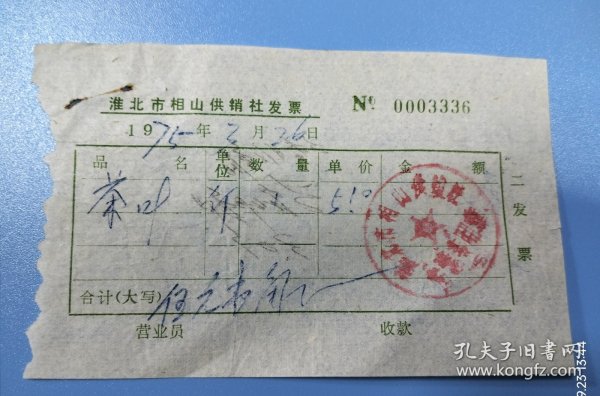 淮北市相山供销社发票 № 0003336
1975年3月26日
品名 单位 数量 单价 金额
茶叶 斤 1 5.10
合计(大写) 伍元壹角
营业员 收款
二发票
孔夫子旧书网
www.kongfz.com